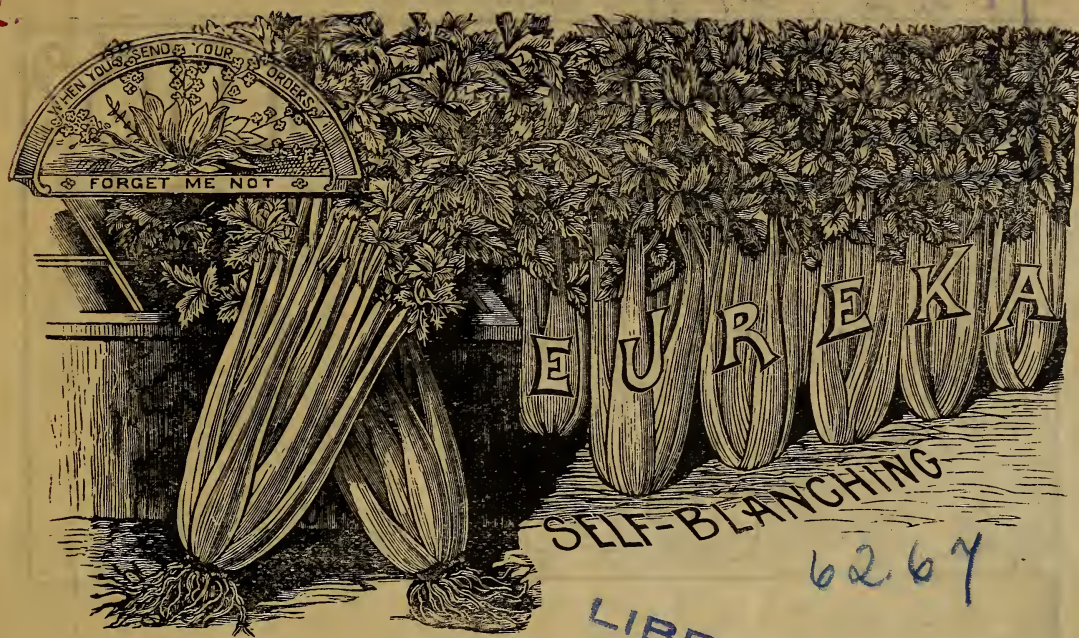 WHEN YOU SEND YOUR ORDERS
FORGET ME NOT
EUREKA
SELF-BLANCHING
62.67